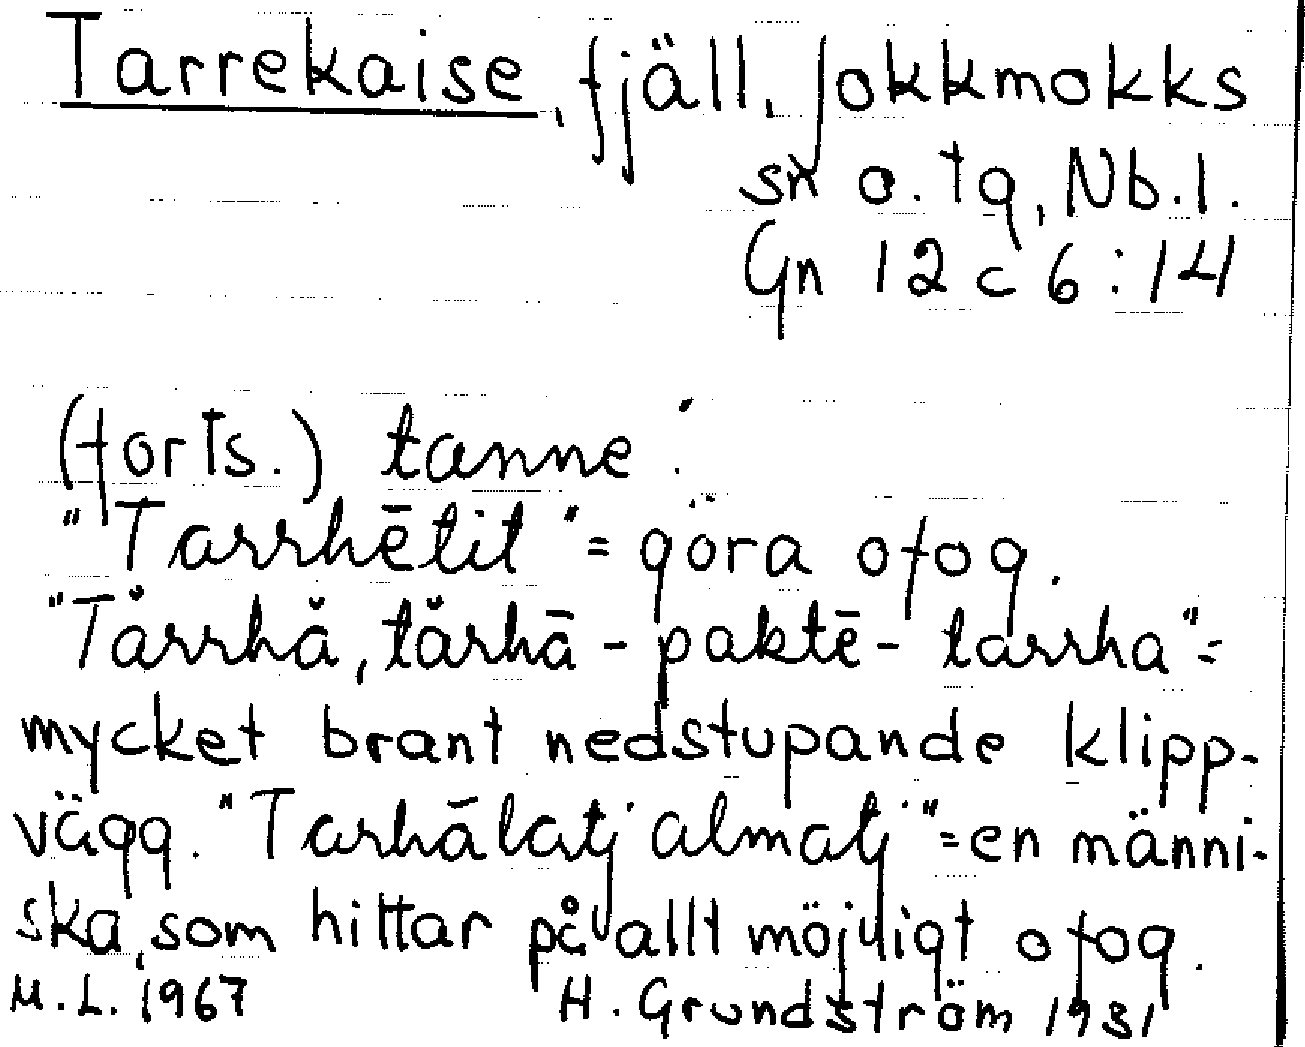 Tarrekaise, fjäll, Jokkmokks
sn o. tg, Nb.l.
Gn 12 c 6:14
(forts.) tanne.
"Tarrhētit" = göra ofog.
"Tårrhă, tărhā - paktē - tarrha" =
mycket brant nedstupande klipp-
vägg. "Tarhālatj almatj" = en männi-
ska, som hittar på allt möjligt ofog.
M.L. 1967 H. Grundström 1931